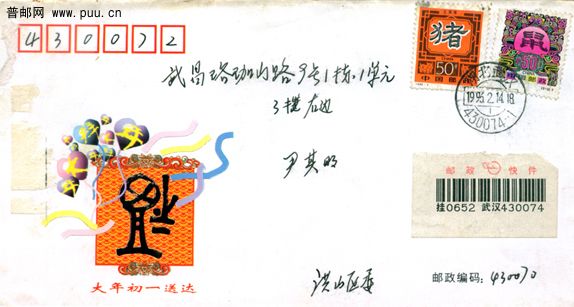 普邮网 www.puu.cn
430072
武昌珞珈山路9号1栋1单元
3楼右边
尹其明
猪
50分
中国邮政
鼠
50分
中国邮政
1996.2.14.18
430074-1
邮政 快件
挂0652 武汉430074
大年初一送达
洪山区委
邮政编码:430070